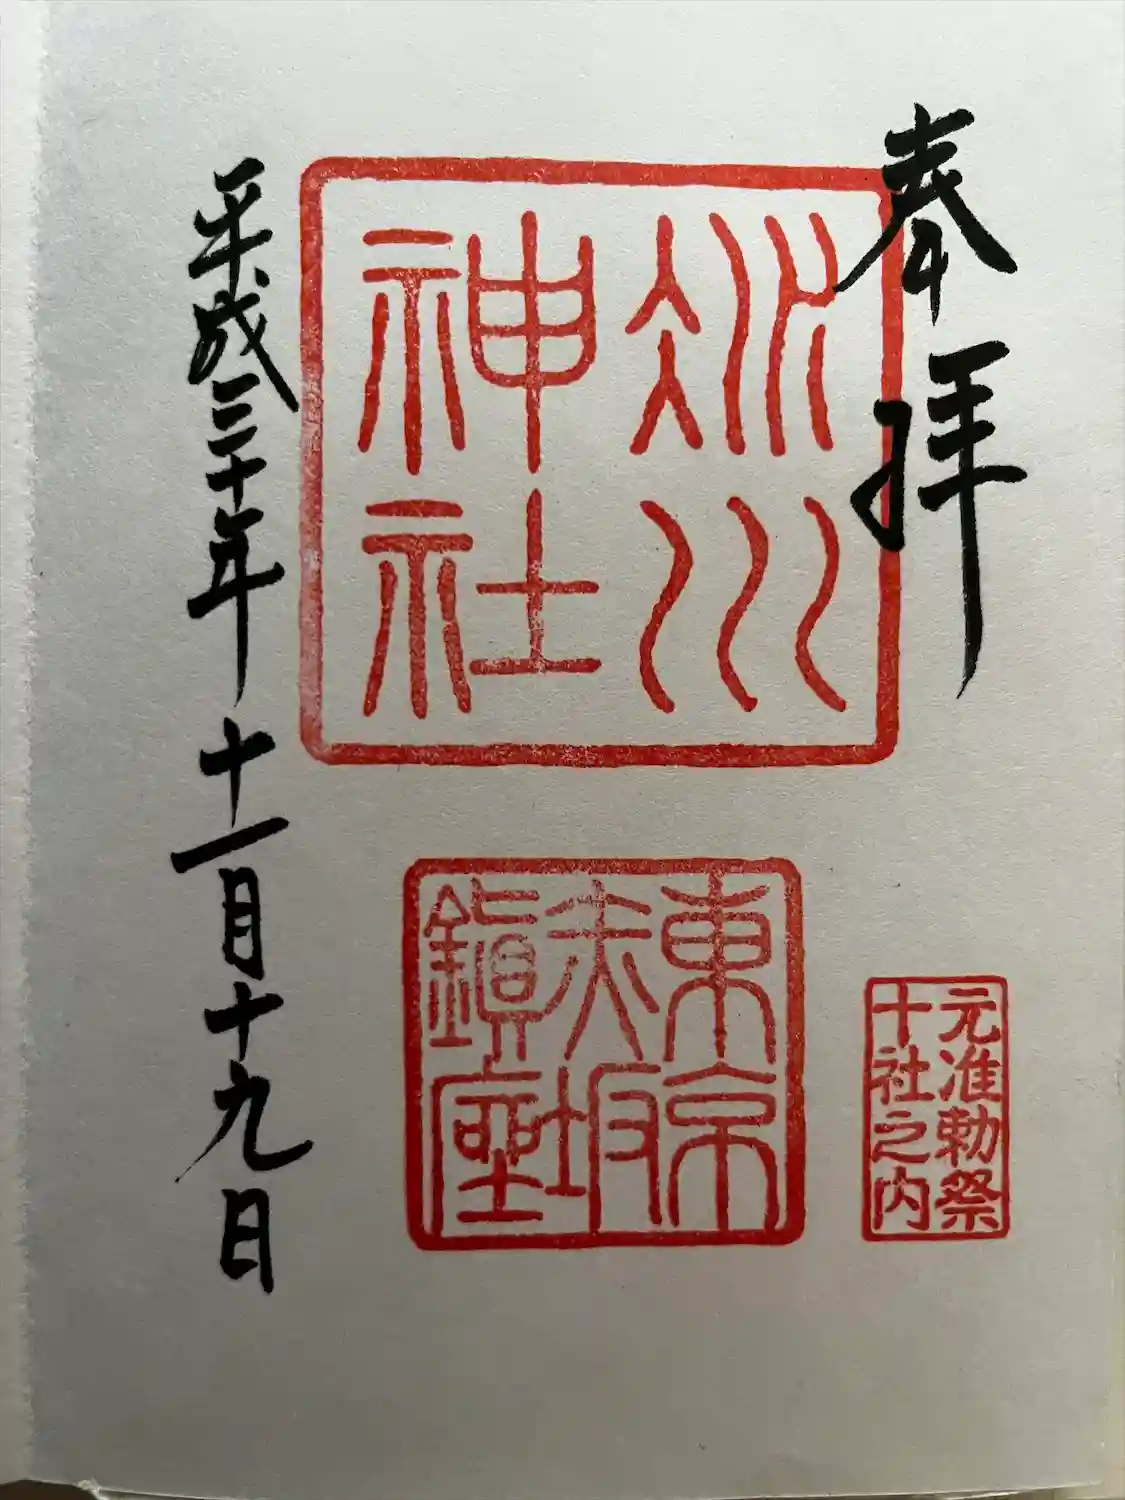 奉拝
元准勅祭
十社之内
冰川
神社
東京
赤坂
鎭座
平成三十年十一月十九日